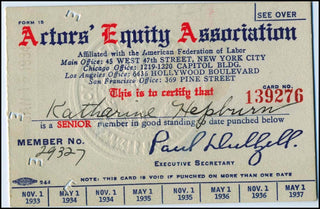 FORM 15
SEE OVER
Actors' Equity Association
Affiliated with the American Federation of Labor
Main Office: 45 WEST 47th STREET, NEW YORK CITY
Chicago Office: 1219-1220 CAPITOL BLDG.
Los Angeles Office: 6636 HOLLYWOOD BOULEVARD
San Francisco Office: 369 PINE STREET
CARD NO.
This is to certify that
139276
Katharine Hepburn
is a SENIOR member in good standing to date punched below
MEMBER No.
29327
Paul Dullzell
EXECUTIVE SECRETARY
NOTE: THIS CARD IS VOID IF PUNCHED ON MORE THAN ONE DATE
NOV. 1 1933
MAY 1 1934
NOV. 1 1934
MAY 1 1935
NOV. 1 1935
MAY 1 1936
NOV. 1 1936
MAY 1 1937